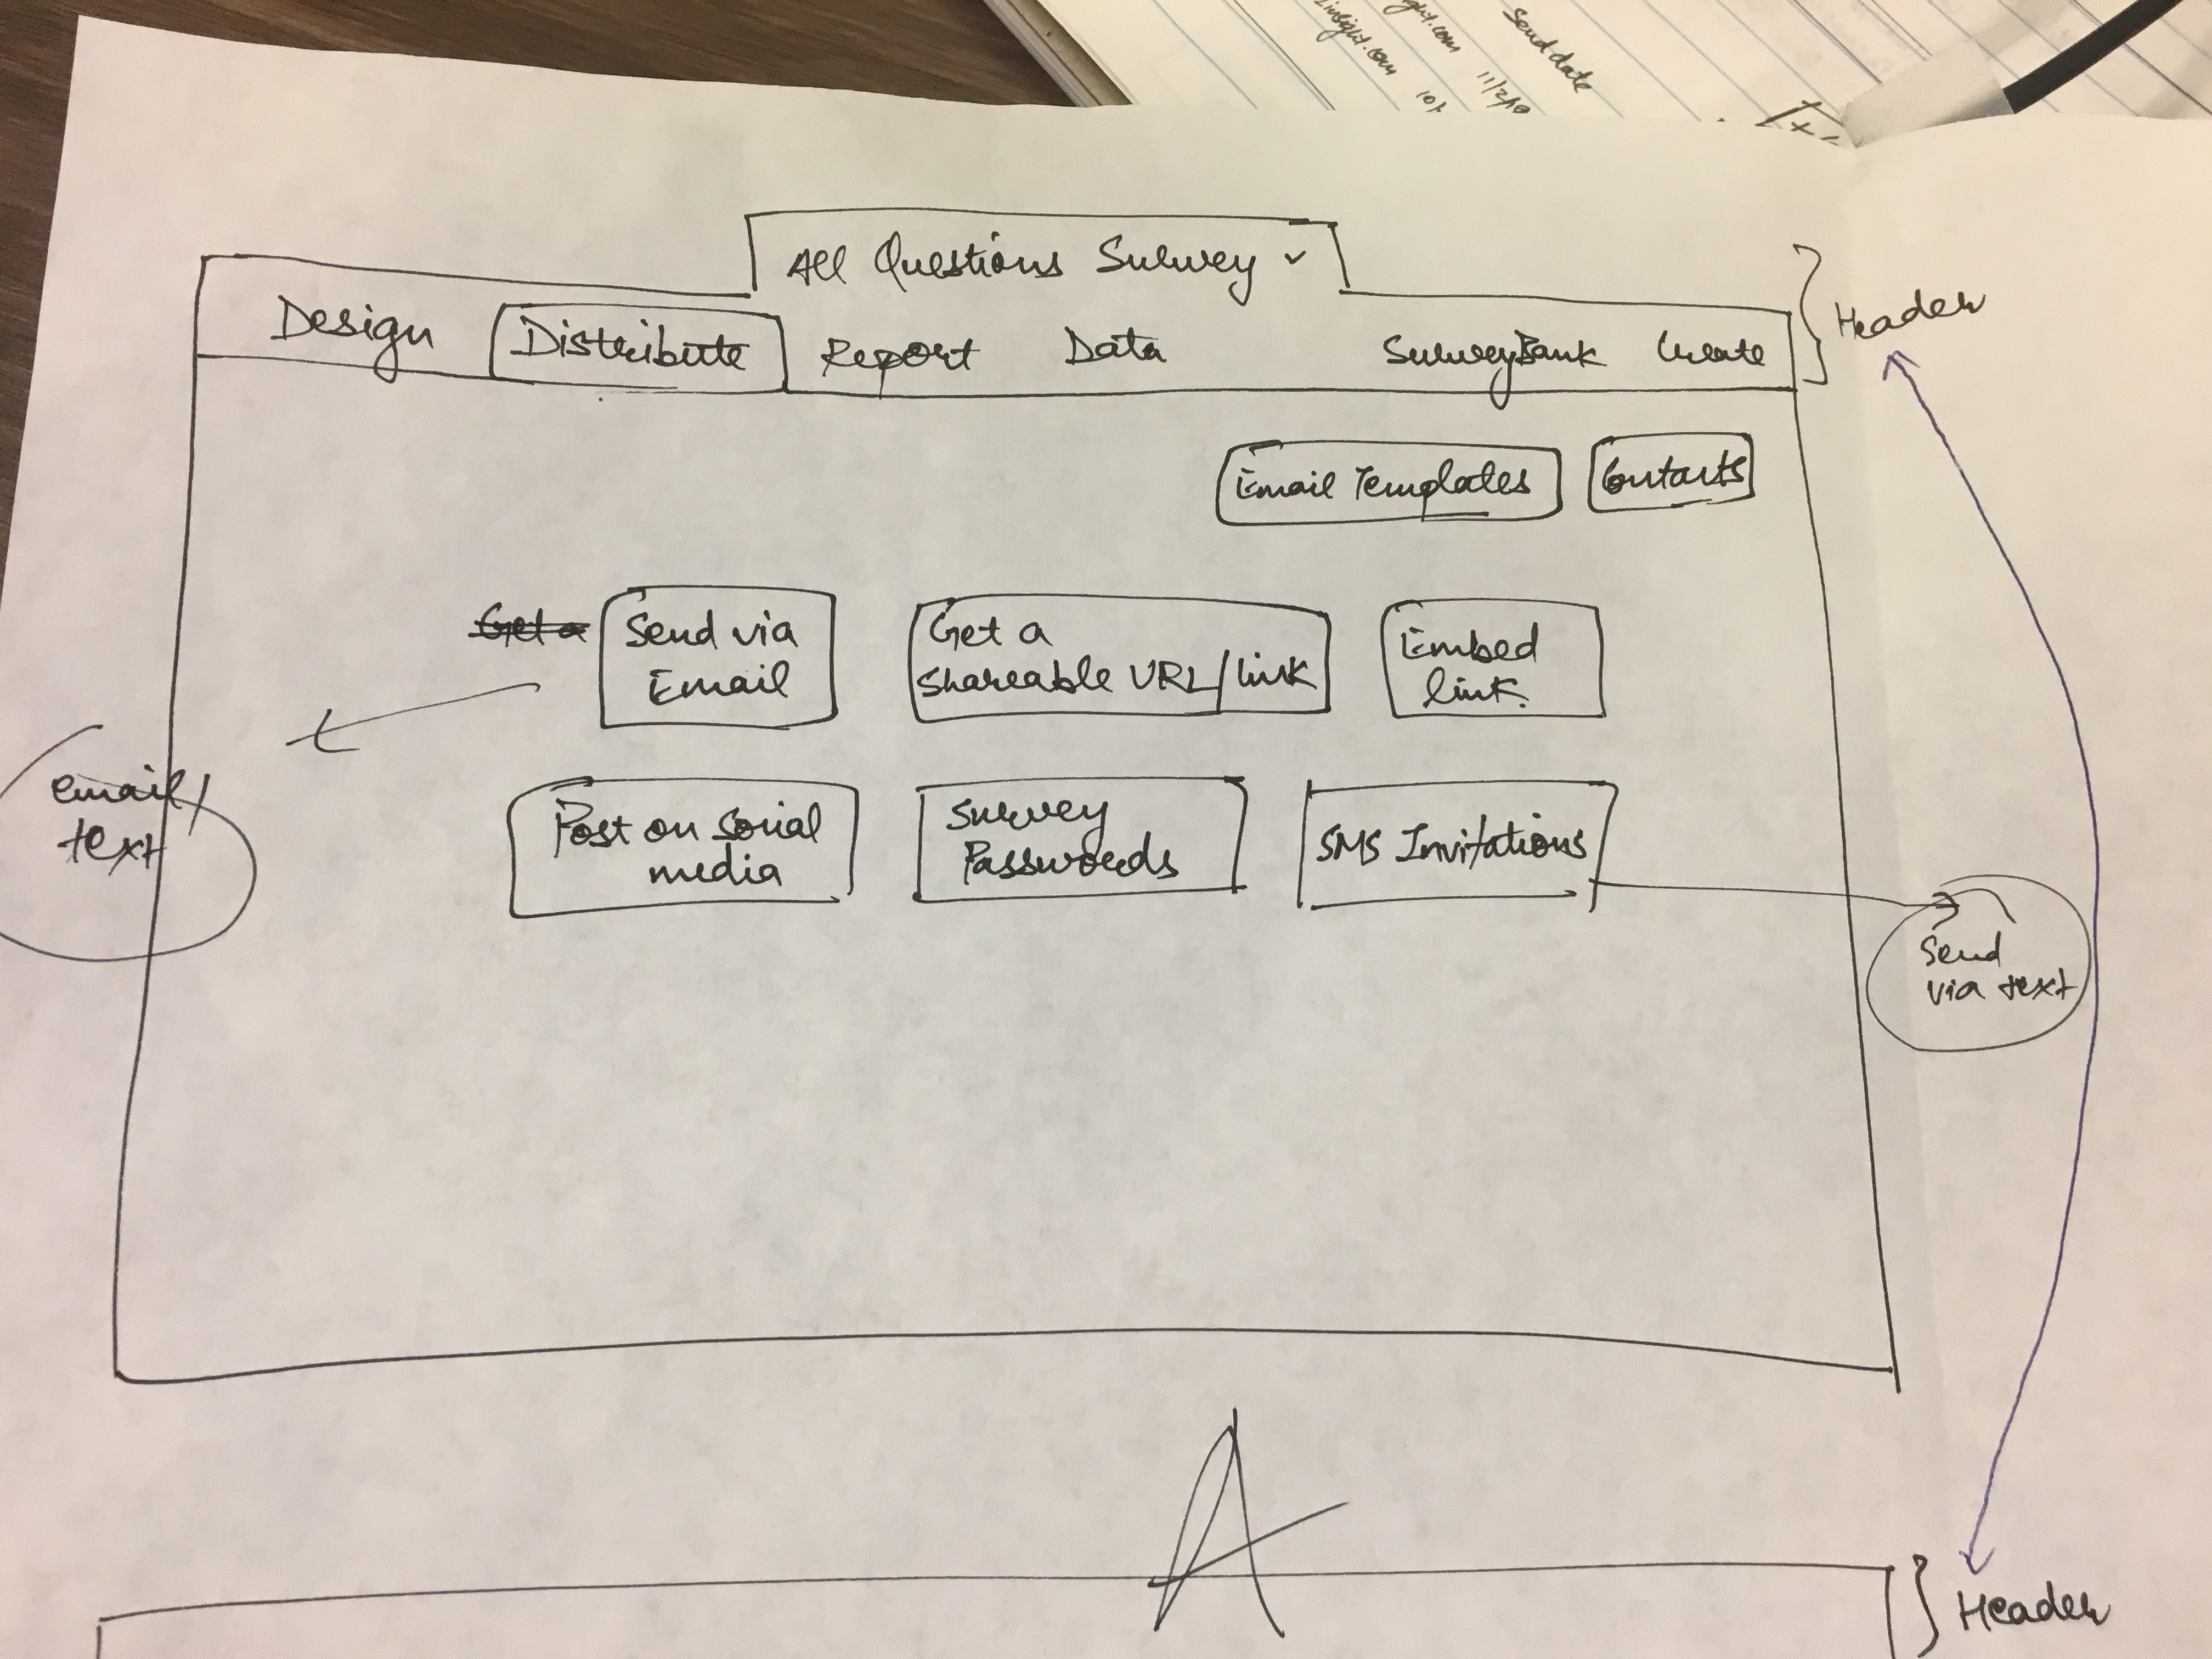 Send date
light.com 11/2/18
inlight.com 10/
All Questions Survey
Design Distribute Report Data SurveyBank Create
Header
Email Templates Contacts
Get a
Send via
Email
Get a
Shareable URL/link
Embed
link.
email/
text
Post on Social
media
Survey
Passwords
SMS Invitations
Send
via text
A
Header